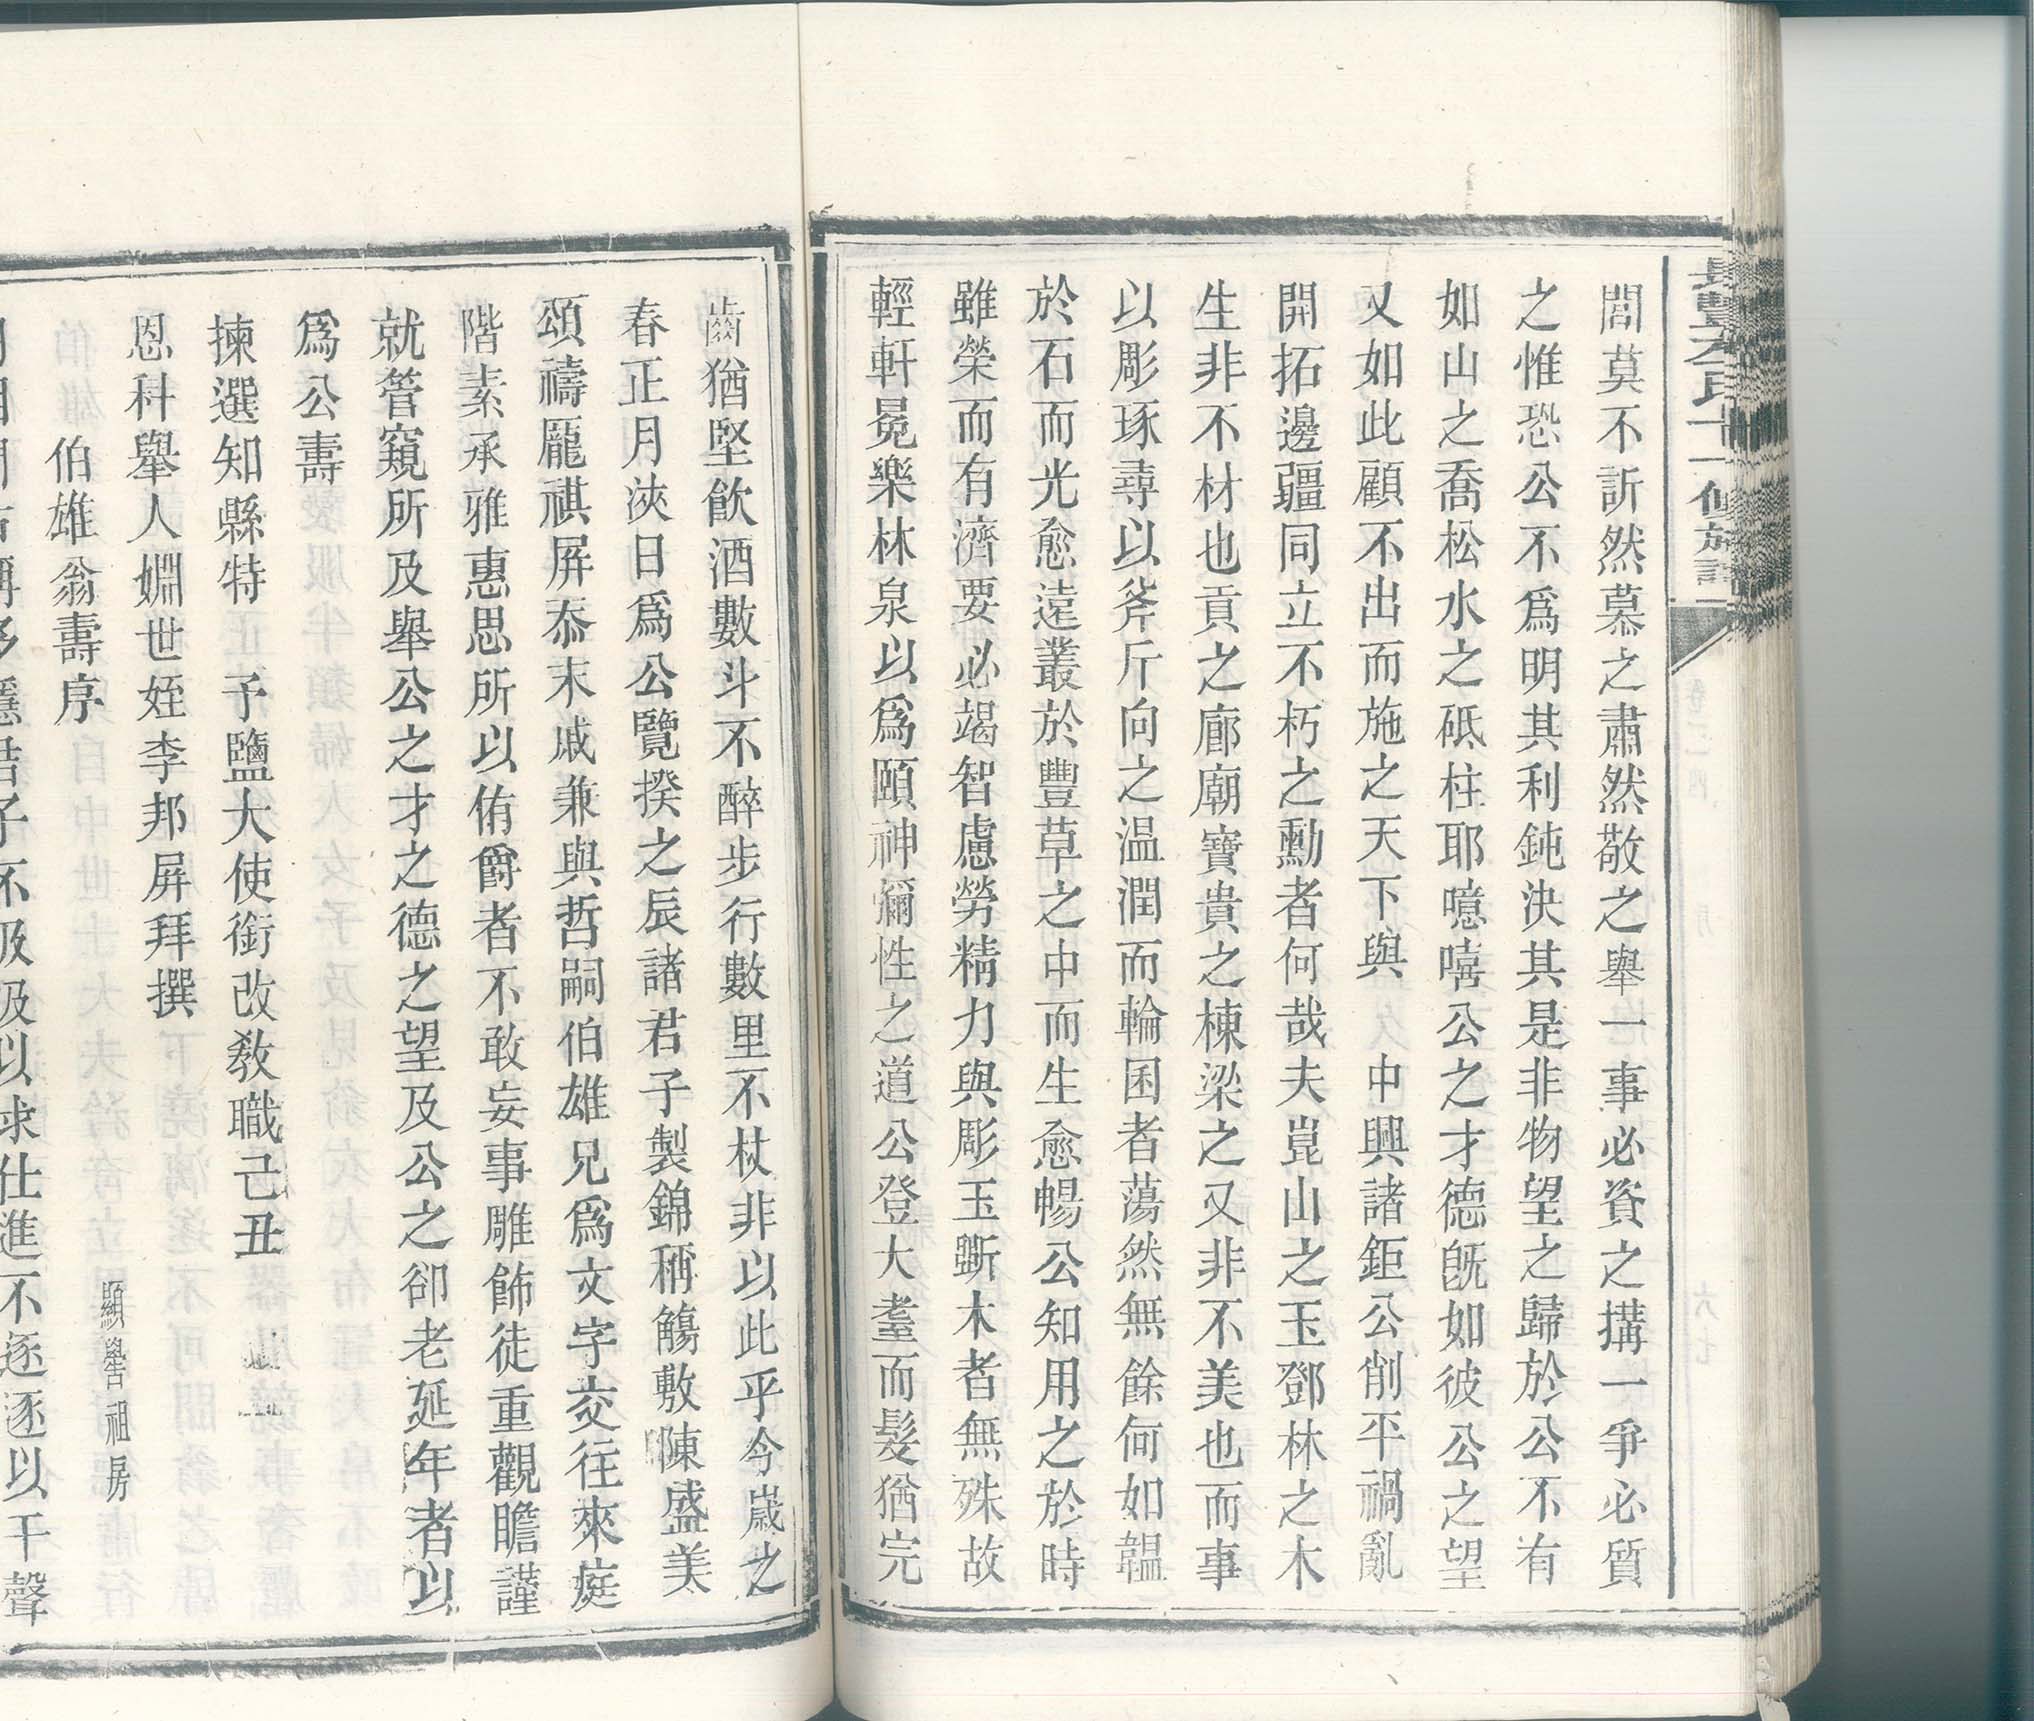 閭莫不訢然慕之肅然敬之舉一事必資之搆一爭必質
之惟恐公不爲明其利鈍決其是非物望之歸於公不有
如山之喬松水之砥柱耶噫嘻公之才德旣如彼公之望
又如此顧不出而施之天下與 中興諸鉅公削平禍亂
開拓邊疆同立不朽之勳者何哉夫崑山之玉鄧林之木
生非不材也貢之廊廟寶貴之棟梁之又非不美也而事
以彫琢尋以斧斤向之温潤而輪囷者蕩然無餘何如韞
於石而光愈遠叢於豐草之中而生愈暢公知用之於時
雖榮而有濟要必竭智慮勞精力與彫玉斲木者無殊故
輕軒冕樂林泉以爲頤神彌性之道公登大耋而髮猶完
齒猶堅飲酒數斗不醉步行數里不杖非以此乎今歲之
春正月浹日爲公覽揆之辰諸君子製錦稱觴敷陳盛美
頌禱龎祺屏忝末戚兼與哲嗣伯雄兄爲文字交往來庭
階素承雅惠思所以侑爵者不敢妄事雕飾徒重觀瞻謹
就管窺所及舉公之才之德之望及公之卻老延年者以
爲公壽
揀選知縣特 予鹽大使銜改敎職己丑
恩科舉人婣世姪李邦屏拜撰
伯雄翁壽序 顯譽祖房
君子不汲汲以求仕進不逐逐以干聲
六七